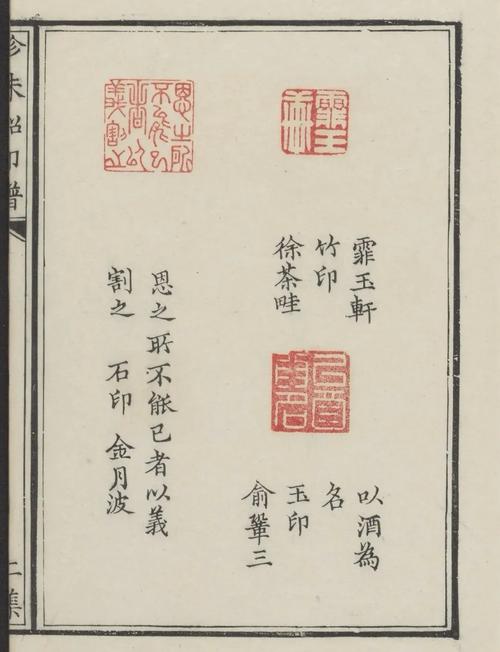 霏玉軒
竹印
徐茶畦
以酒為
名
玉印
俞鞏三
恩之所不能已者以義
割之 石印 金月波
二集